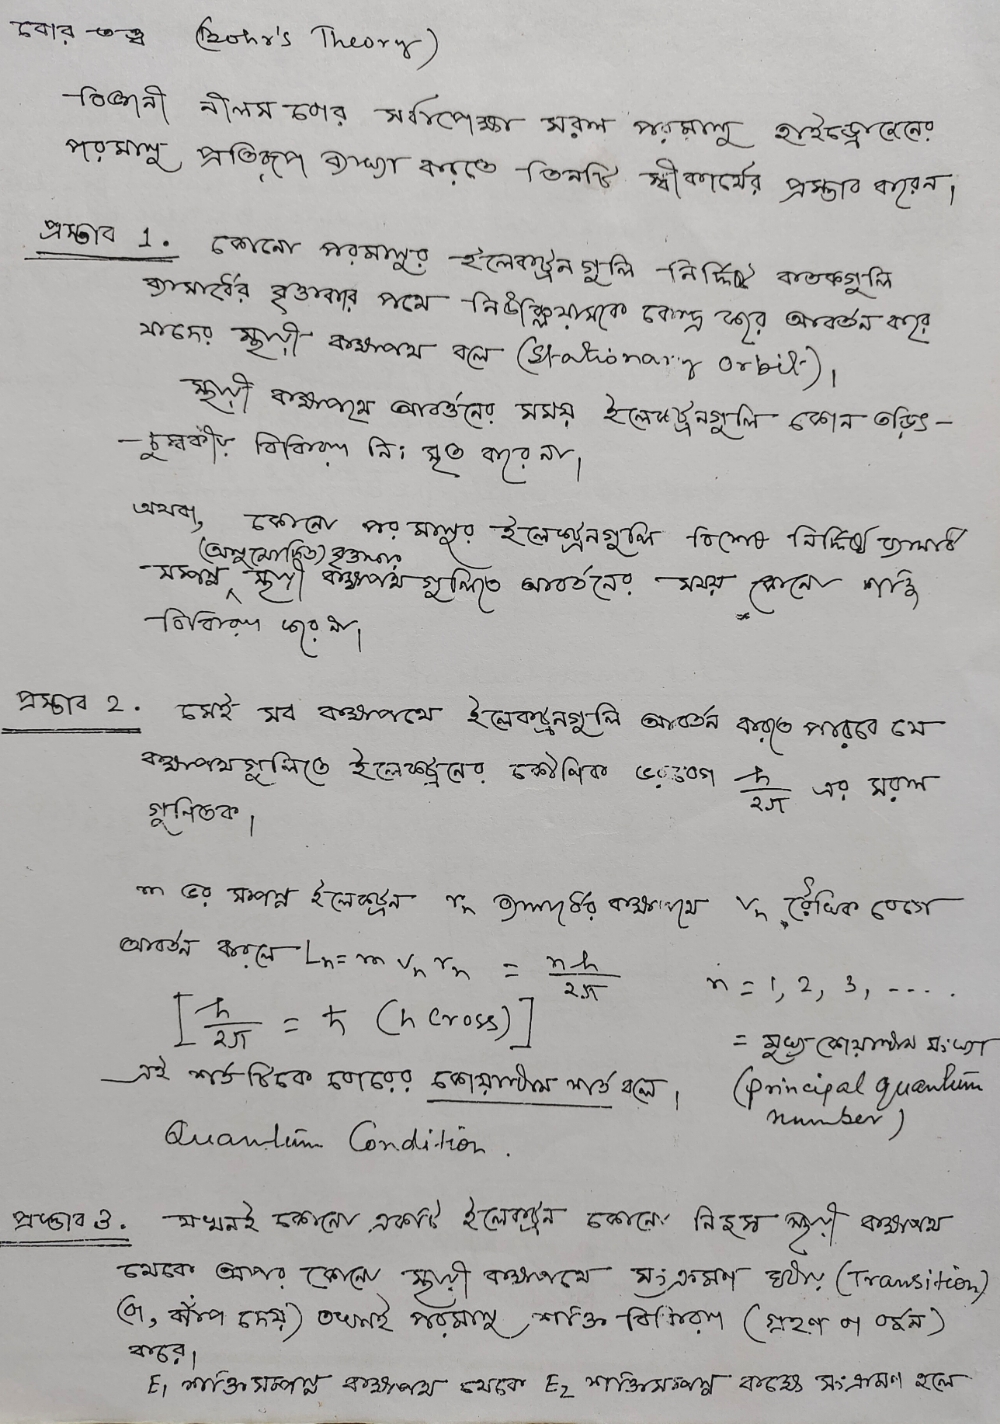 বোর তত্ত্ব (Bohr's Theory)
বিজ্ঞানী নীলস বোর সর্বাপেক্ষা সরল পরমাণু হাইড্রোজেনের
পরমাণু প্রতিরূপ ব্যাখ্যা করতে তিনটি স্বীকার্যের প্রস্তাব করেন।
প্রস্তাব 1. কোনো পরমাণুর ইলেকট্রনগুলি নির্দিষ্ট কতকগুলি
ব্যাসার্ধের বৃত্তাকার পথে নিউক্লিয়াসকে কেন্দ্র করে আবর্তন করে
যাদের স্থায়ী কক্ষপথ বলে (Stationary orbit)।
স্থায়ী কক্ষপথে আবর্তনের সময় ইলেকট্রনগুলি কোন তড়িৎ-
-চুম্বকীয় বিকিরণ নিঃসৃত করে না।
অথবা, কোনো পরমাণুর ইলেকট্রনগুলি বিশেষ নির্দিষ্ট ব্যাসার্ধ
(অনুমোদিত) বৃত্তাকার
সম্পন্ন স্থায়ী কক্ষপথগুলিতে আবর্তনের সময় কোনো শক্তি
বিকিরণ করে না।
প্রস্তাব 2. সেই সব কক্ষপথে ইলেকট্রনগুলি আবর্তন করতে পারবে যে
কক্ষপথগুলিতে ইলেকট্রনের কৌণিক ভরবেগ h/2π এর সরল
গুণিতক।
m ভর সম্পন্ন ইলেকট্রন rₙ ব্যাসার্ধের কক্ষপথে vₙ রৈখিক বেগে
আবর্তন করলে Lₙ = m vₙ rₙ = nh/2π n = 1, 2, 3, ....
[h/2π = ħ (h cross)] = মুখ্য কোয়ান্টাম সংখ্যা
এই শর্তটিকে বোরের কোয়ান্টাম শর্ত বলে। (principal quantum
number)
Quantum Condition.
প্রস্তাব 3. যখনই কোনো একটি ইলেকট্রন কোনো নিজস্ব স্থায়ী কক্ষপথ
থেকে অপর কোনো স্থায়ী কক্ষপথে সংক্রমণ ঘটায় (Transition)
(বা, ঝাঁপ দেয়) তখনই পরমাণু শক্তি বিকিরণ (গ্রহণ বা বর্জন)
করে।
E₁ শক্তিসম্পন্ন কক্ষপথ থেকে E₂ শক্তিসম্পন্ন কক্ষে সংক্রমণ হলে